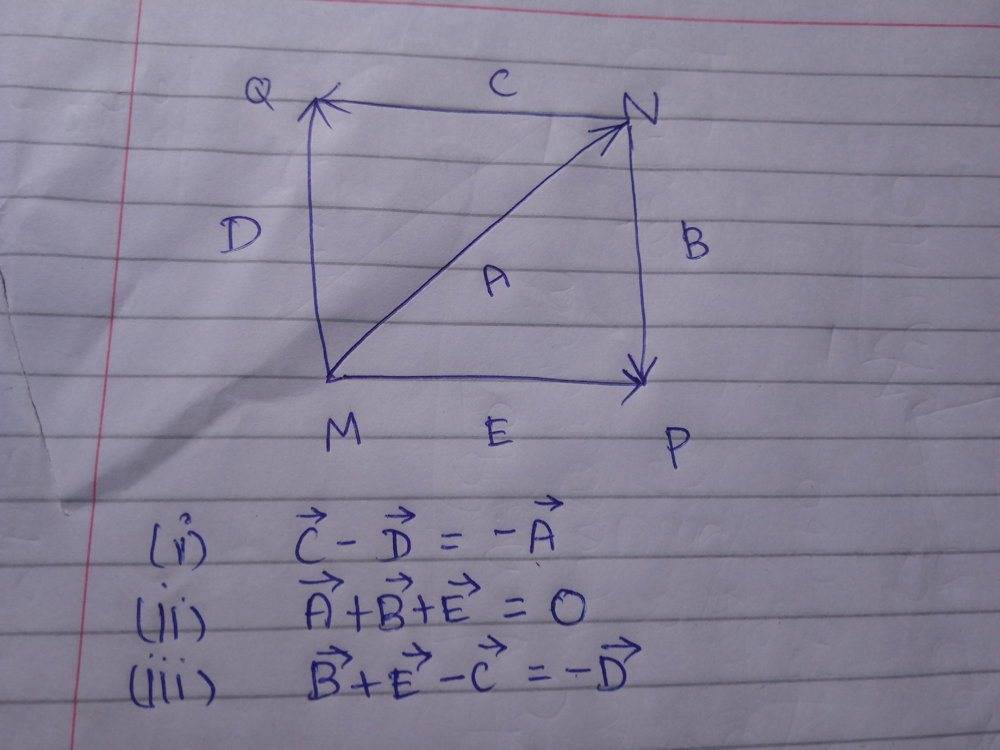 Q C N
D A B
M E P
(i) C⃗ - D⃗ = -A⃗
(ii) A⃗ + B⃗ + E⃗ = 0
(iii) B⃗ + E⃗ - C⃗ = -D⃗